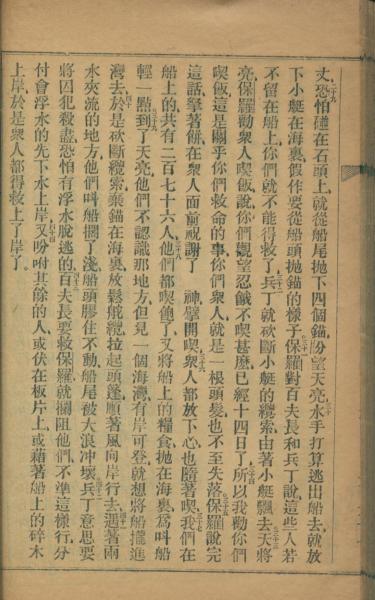 丈、二十九恐怕碰在石頭上、就從船尾抛下四個錨、盼望天亮。三十水手打算逃出船去、就放
下小艇在海裏、假作要從船頭抛錨的樣子。三十一保羅對百夫長和兵丁說、這些人若
不留在船上、你們就不能得救了。三十二兵丁就砍斷小艇的纜索、由著小艇飄去。三十三天將
亮、保羅勸衆人喫飯、說、你們觀望忍餓不喫甚麼、已經十四日了。三十四所以我勸你們
喫飯、這是關乎你們救命的事、你們衆人、就是一根頭髮也不至失落。三十五保羅說完
這話、拏著餅、在衆人面前祝謝了　神、擘開喫。三十六衆人都放下心、也隨著喫。三十七我們在
船上的、共有二百七十六人。三十八他們都喫飽了、又將船上的糧食抛在海裏、爲叫船
輕一點。三十九到了天亮、他們不認識那地方、但見一個海灣、有岸可登、就想將船攏進
灣去。四十於是砍斷纜索、棄錨在海裏、放鬆舵纜、拉起頭蓬、順著風向岸行去。四十一遇著兩
水夾流的地方、他們叫船擱了淺、船頭膠住不動、船尾被大浪冲壞。四十二兵丁意思要
將囚犯殺盡、恐怕有浮水脫逃的。四十三百夫長要救保羅、就攔阻他們、不準這樣行、分
付會浮水的、先下水上岸、四十四又吩咐其餘的人、或伏在板片上、或藉著船上的碎木
上岸、於是衆人都得救上了岸了。